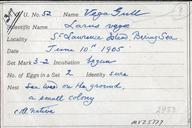 U. No. 52 Name Vega Gull
Scientific Name Larus vegae
Locality St Lawrence Island Bering Sea
Date June 10th 1905
Set Mark 3-2 Incubation begun
No. of Eggs in a Set 2 Identity sure
Nest lined on the ground,
a small colony